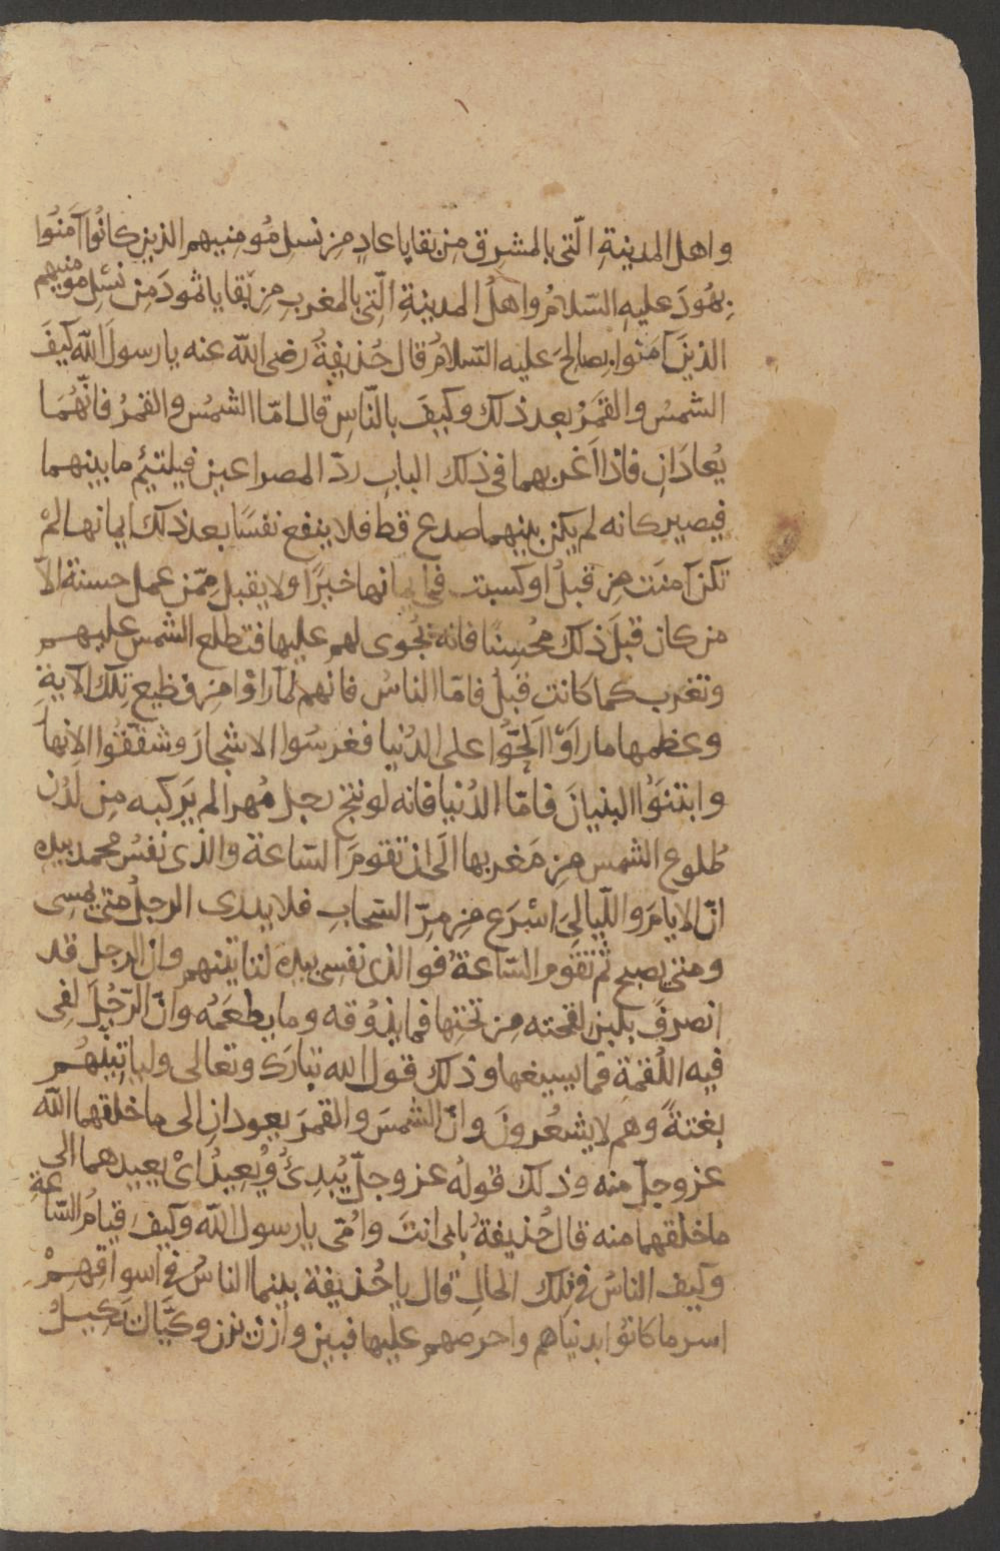 واهل المدينةِ الّتى بالمشرِق مِن بقايا عادٍ مِن نسلِ مُومِنِيهم الذين كانُوا آمَنُوا
بِهُودَ عليهِ السّلامُ واهلُ المدينةِ الّتِى بالمغربِ مِن بَقايا ثمُودَ مِن نَسْلِ مومنيهم
الذينَ آمَنوا بِصالِحَ عليه السّلامُ قال حُذيفةُ رضى الله عنه يا رسولَ الله كيفَ
الشمسُ والقمَرُ بعد ذلك وكيفَ بالنّاسِ قال امّا الشمسُ والقمرُ فانّهُمَا
يُعادَانِ فاذا اَغربهما فى ذلك البابِ ردّ المصراعينِ فيلتئِمُ ما بينهما
فيصير كانه لم يكن بينهما صدع قط فلا ينفع نفسًا بعد ذلك ايمانها لمْ
تكن آمنَت مِن قبلُ او كسبت فى ايمانها خيرًا ولا يقبل مِمّن عمل حسنة الاّ
من كان قبلَ ذلك مُحْسِنًا فانه يجْرى لهم عليها فتطلع الشمس عليهم
وتغرب كما كانت قبلُ فامّا الناسُ فانهم لمّا راوْا مِن فظيع تِلك الآيةِ
وعظمها ما راَوْا اَلحُّوا على الدُنيا فغرسُوا الاشجارَ وشققُوا الانهاَ
وابتنوُا البنيانَ فامّا الدُنيا فانه لو نتج رجل مُهرا لم يَركبه مِن لَدُن
طُلوع الشمس مِن مَغربها الَى ان تقومَ السّاعة والذى نفسُ محمد بيده
انّ الايامَ واللّياليَ اسْرَع مِن مِرّ السّحابِ فلا يدرى الرجلُ متى يمسِى
ومتى يصبح ثم تقوم السّاعةُ فوالذى نفسى بيده لتاتينهم وان الرجل قد
انصرفَ بلبن لقحته مِن تحتِها فما يذُوقه وما يطعَمُه وانّ الرّجُلَ لفى
فيه اللُقمَة فما يسيغها وذلك قول الله تبارَك وتعالى ولياتِينّهُم
بغتةً وهم لا يشعُرونَ وانّ الشمسَ والقمَرَ يعودانِ الى ما خلقهما الله
عز وجلّ منه وذلك قولهُ عز وجلّ يُبدِئُ ويُعِيدُ اىْ يعيدهما الى
ما خلقهما منه قال حُذيفةُ بابى انتَ وامّى يا رسولَ الله وكيف قيامُ السّاعَةِ
وكيف الناسُ فى تِلك الحالِ قال يا حُذيفة بينما الناسُ فى اسواقِهِمْ
اسر ما كانوُا بدنياهم واحرصهم عليها فبين وازن يزن وكيَّال يَكِيلُ